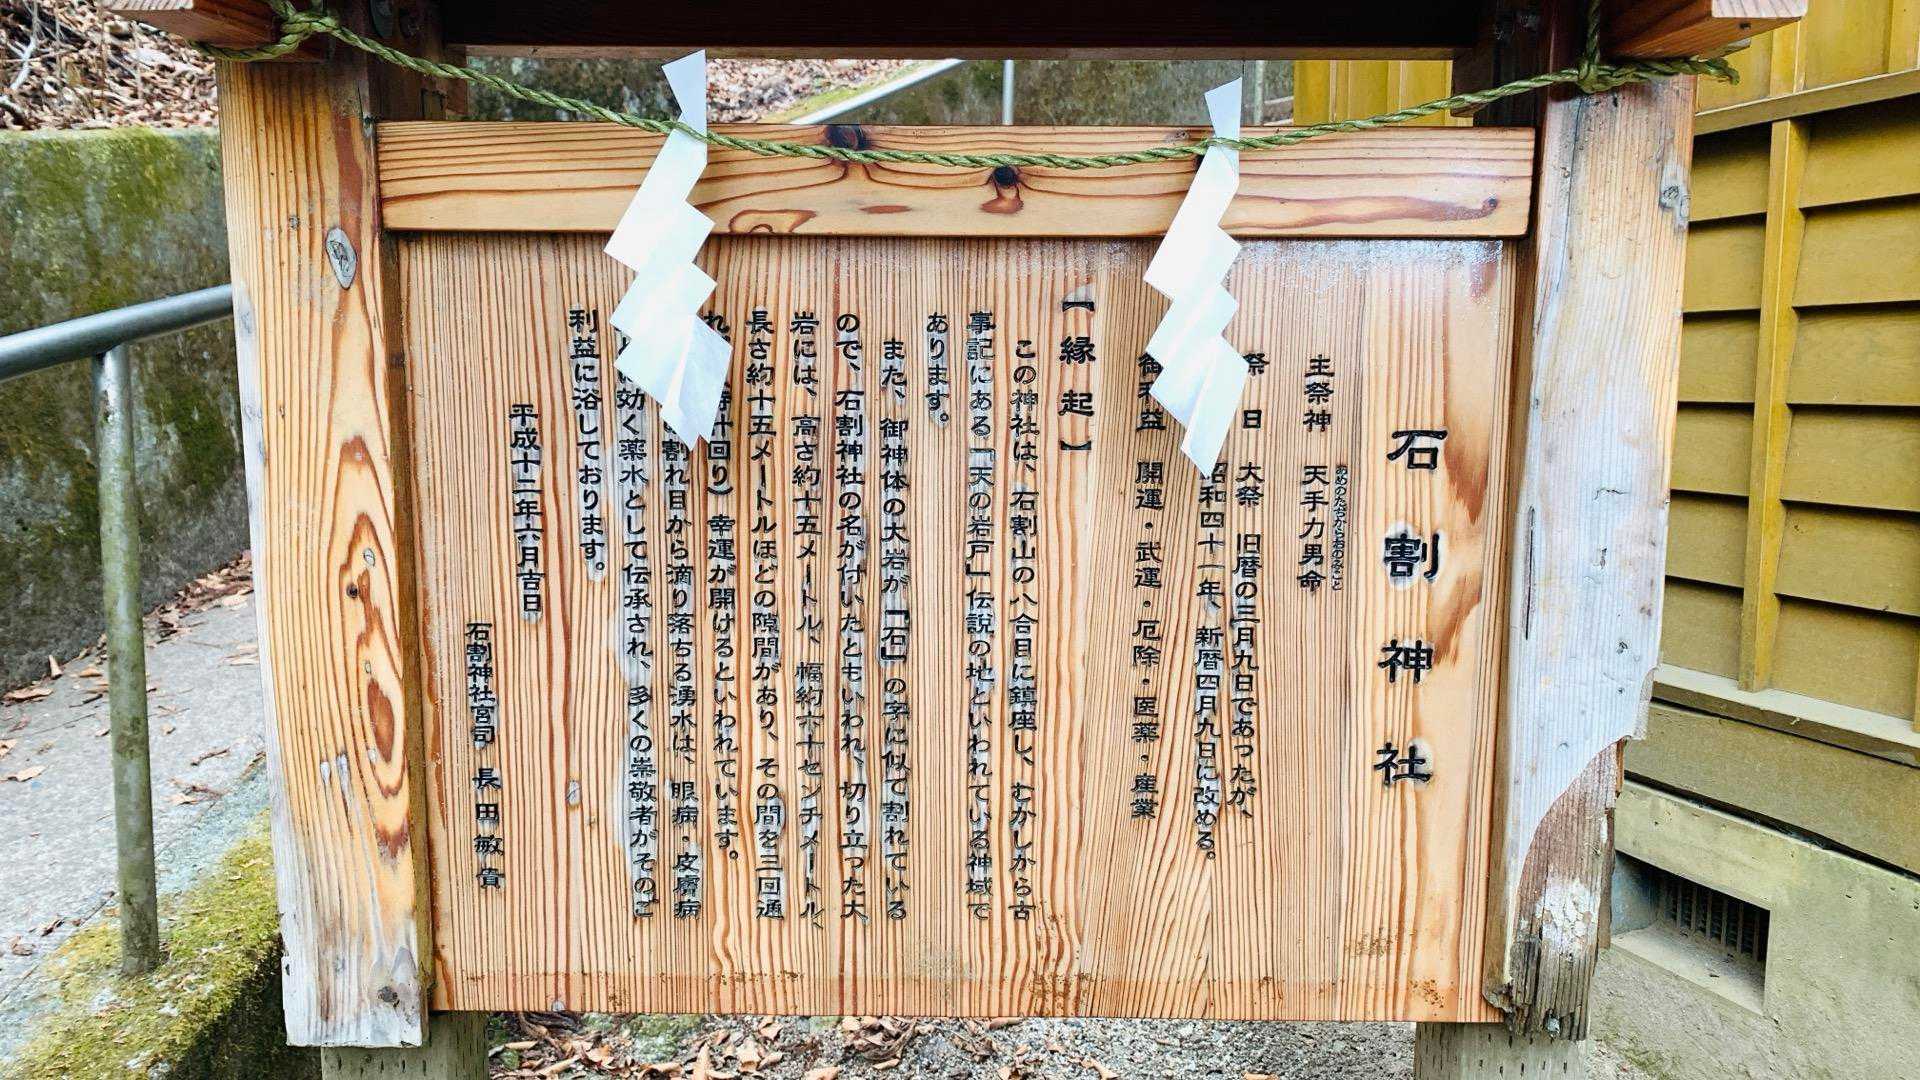 石割神社
主祭神　天手力男命
あめのたぢからおのみこと
祭　日　大祭　旧暦の三月九日であったが、
昭和四十一年、新暦四月九日に改める。
御利益　開運・武運・厄除・医薬・産業
【縁起】
この神社は、石割山の八合目に鎮座し、むかしから古
事記にある「天の岩戸」伝説の地といわれている神域で
あります。
また、御神体の大岩が「石」の字に似て割れている
ので、石割神社の名が付いたともいわれ、切り立った大
岩には、高さ約十五メートル、幅約六十センチメートル、
長さ約十五メートルほどの隙間があり、その間を三回通
れ　時計回り）幸運が開けるといわれています。
割れ目から滴り落ちる湧水は、眼病・皮膚病
に効く薬水として伝承され、多くの崇敬者がそのご
利益に浴しております。
平成十二年六月吉日
石割神社宮司　長田敏貴